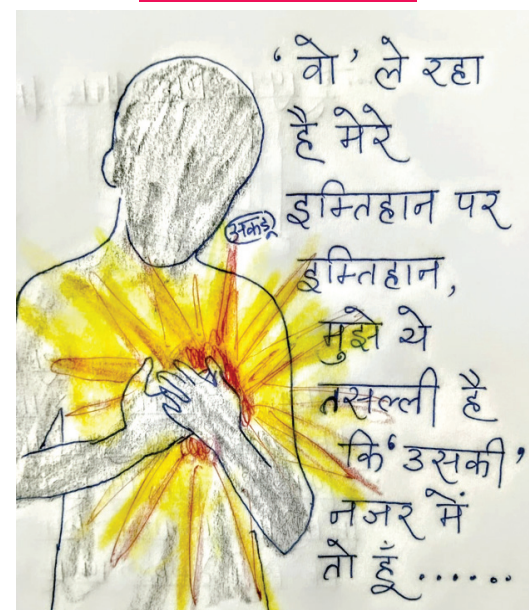 'वो' ले रहा
है मेरे
इम्तिहान पर
इम्तिहान,
मुझे ये
तसल्ली है
कि 'उसकी'
नजर में
तो हूँ......